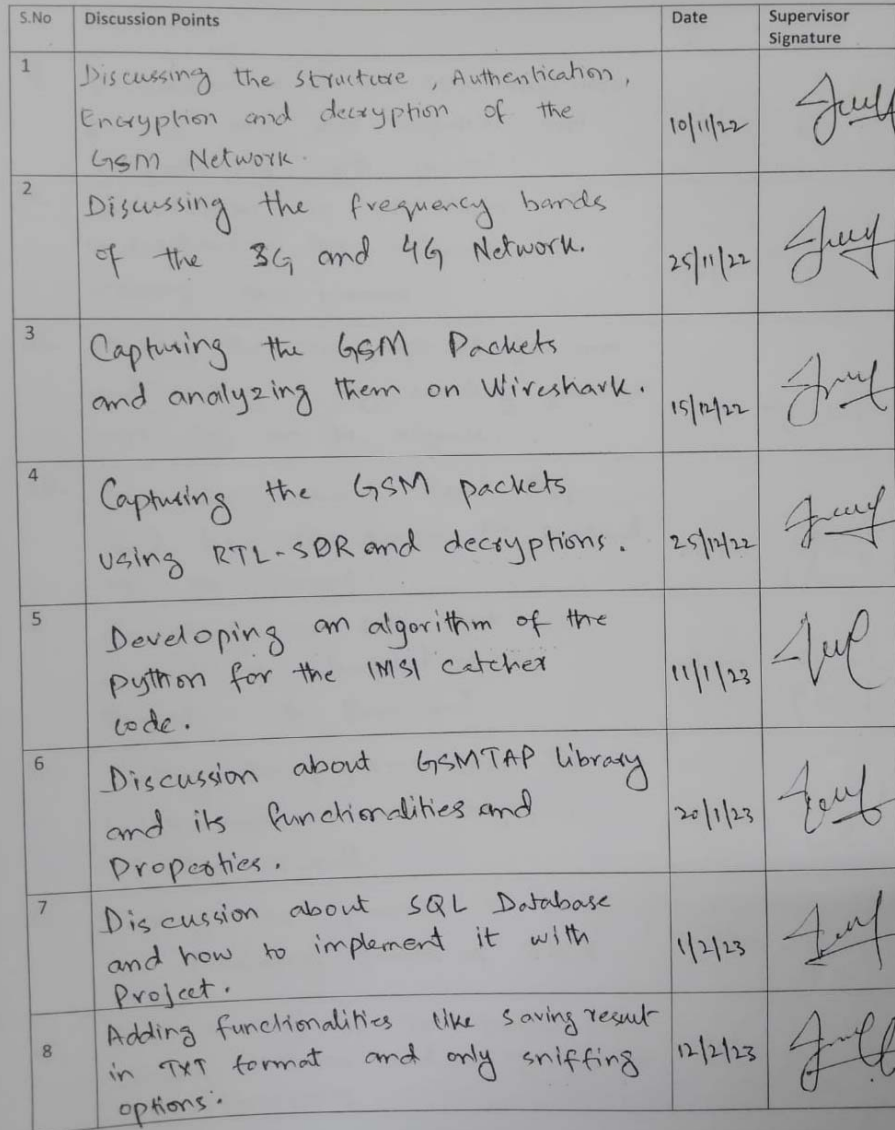 S.No Discussion Points Date Supervisor
Signature
1
Discussing the structure, Authentication,
Encryption and decryption of the
GSM Network.
10/11/22
2
Discussing the frequency bands
of the 3G and 4G Network.
25/11/22
3
Capturing the GSM Packets
and analyzing them on Wireshark.
15/12/22
4
Capturing the GSM packets
using RTL-SDR and decryptions.
25/12/22
5
Developing an algorithm of the
python for the IMSI catcher
code.
11/1/23
6
Discussion about GSMTAP library
and its functionalities and
Properties.
20/1/23
7
Discussion about SQL Database
and how to implement it with
Project.
1/2/23
8
Adding functionalities like saving result
in TXT format and only sniffing
options.
12/2/23